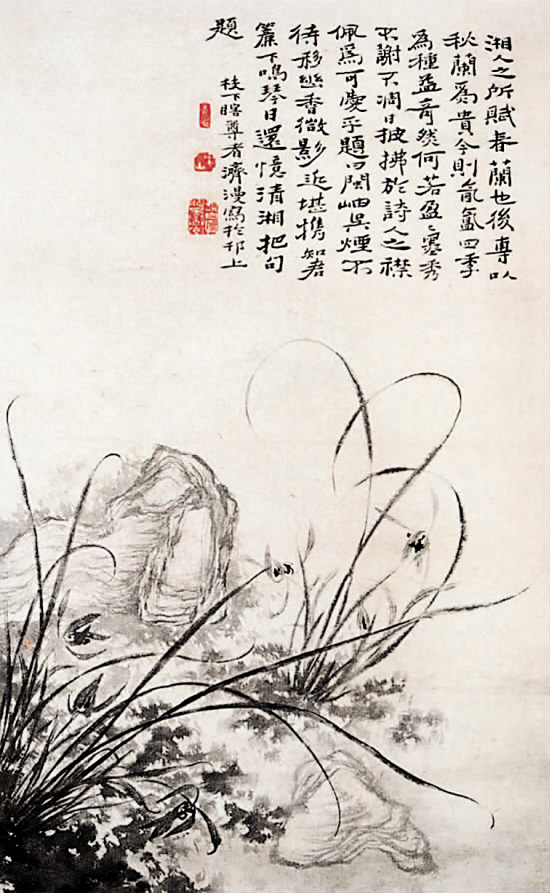 湘人之所賦春蘭也後專以
秋蘭爲貴今則氤氳四季
爲種益奇然何若盈〻墨秀
不謝不凋日披拂於詩人之襟
佩爲可愛乎題曰閩岫吳煙不
待移幽香微影近堪携知君
簾下鳴琴日還憶清湘把句
題
枝下瞎尊者濟漫寫於邗上